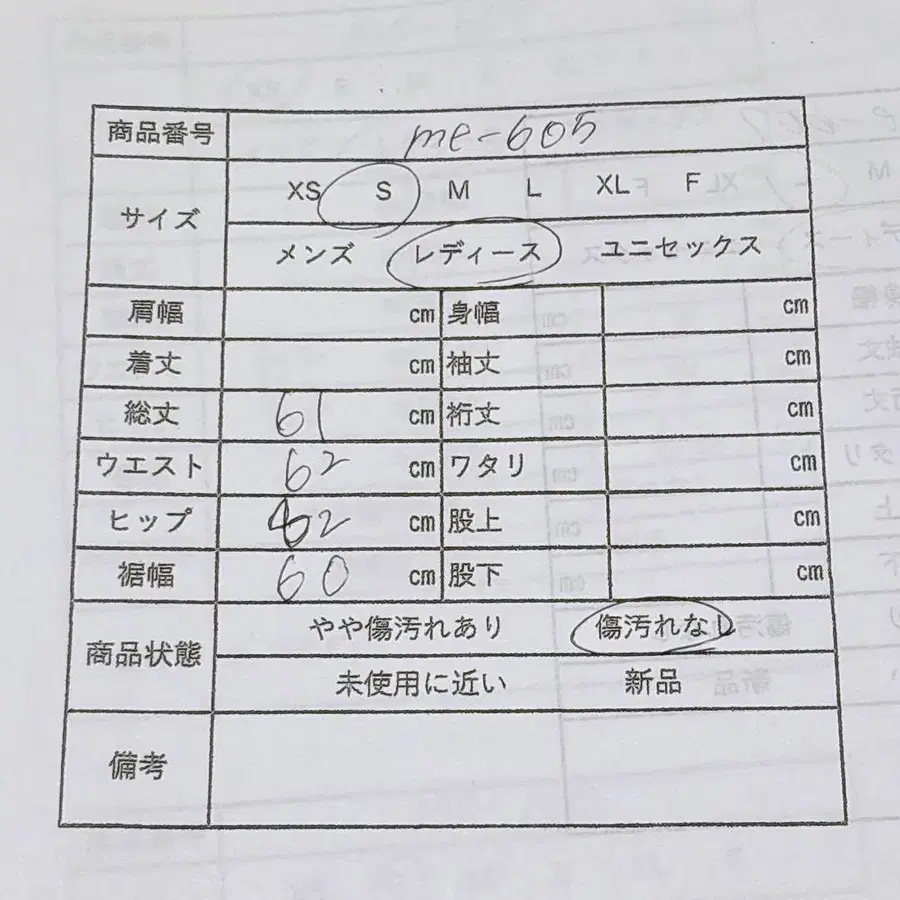 商品番号 me-605
サイズ XS S M L XL F
メンズ レディース ユニセックス
肩幅 cm 身幅 cm
着丈 cm 袖丈 cm
総丈 61 cm 裄丈 cm
ウエスト 62 cm ワタリ cm
ヒップ cm 股上 cm
裾幅 60 cm 股下 cm
商品状態 やや傷汚れあり 傷汚れなし
未使用に近い 新品
備考